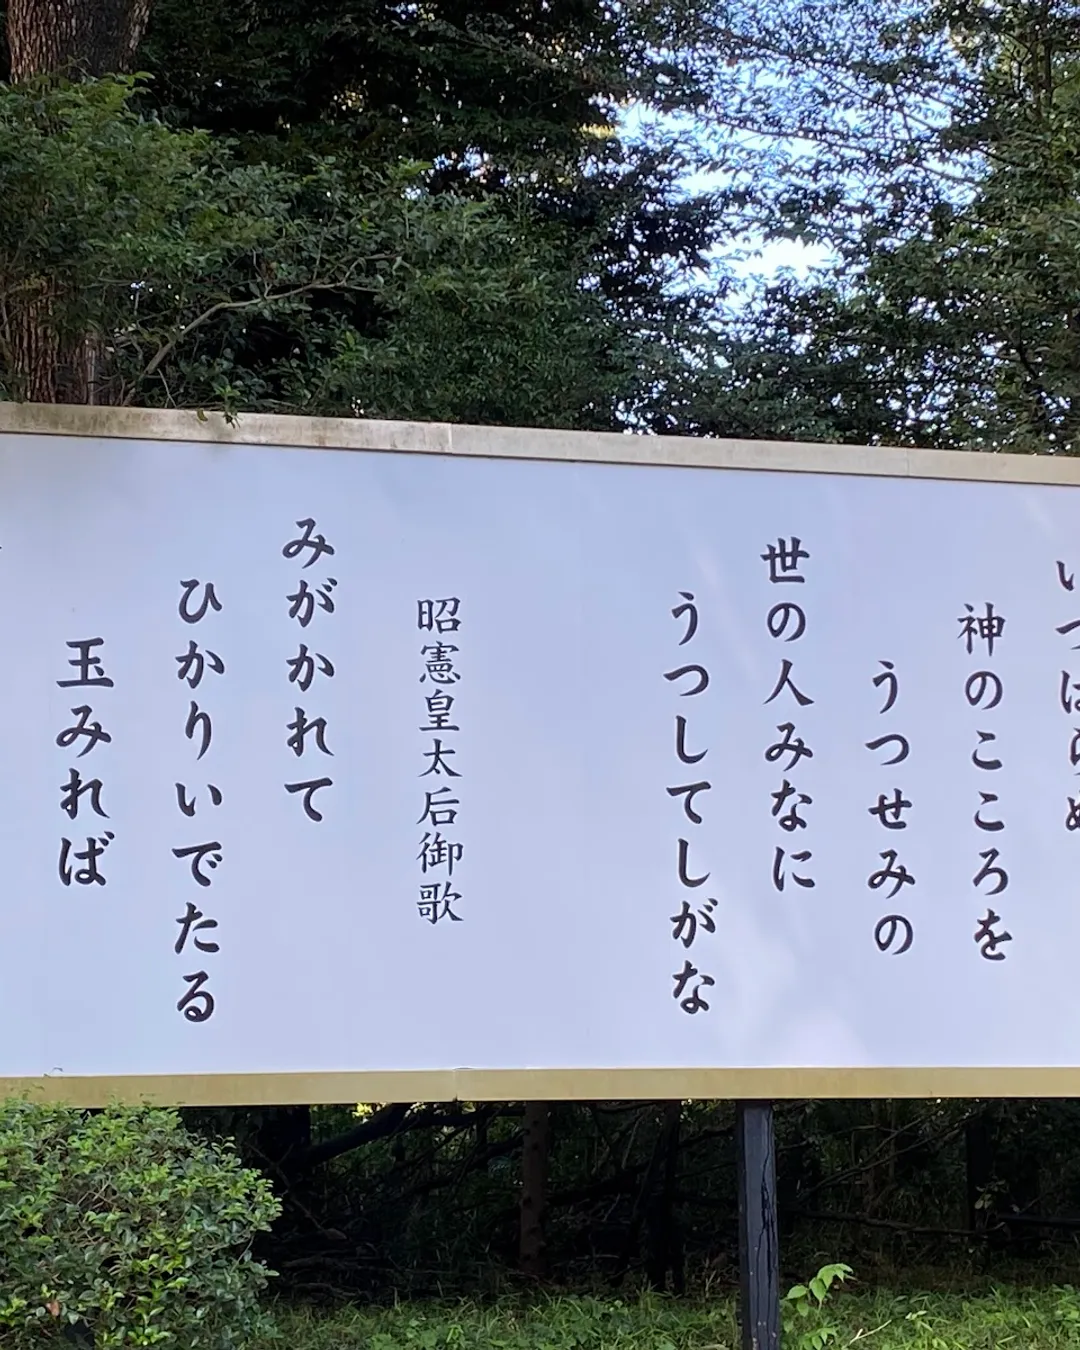 いつはらぬ
神のこころを
うつせみの
世の人みなに
うつしてしがな
昭憲皇太后御歌
みがかれて
ひかりいでたる
玉みれば